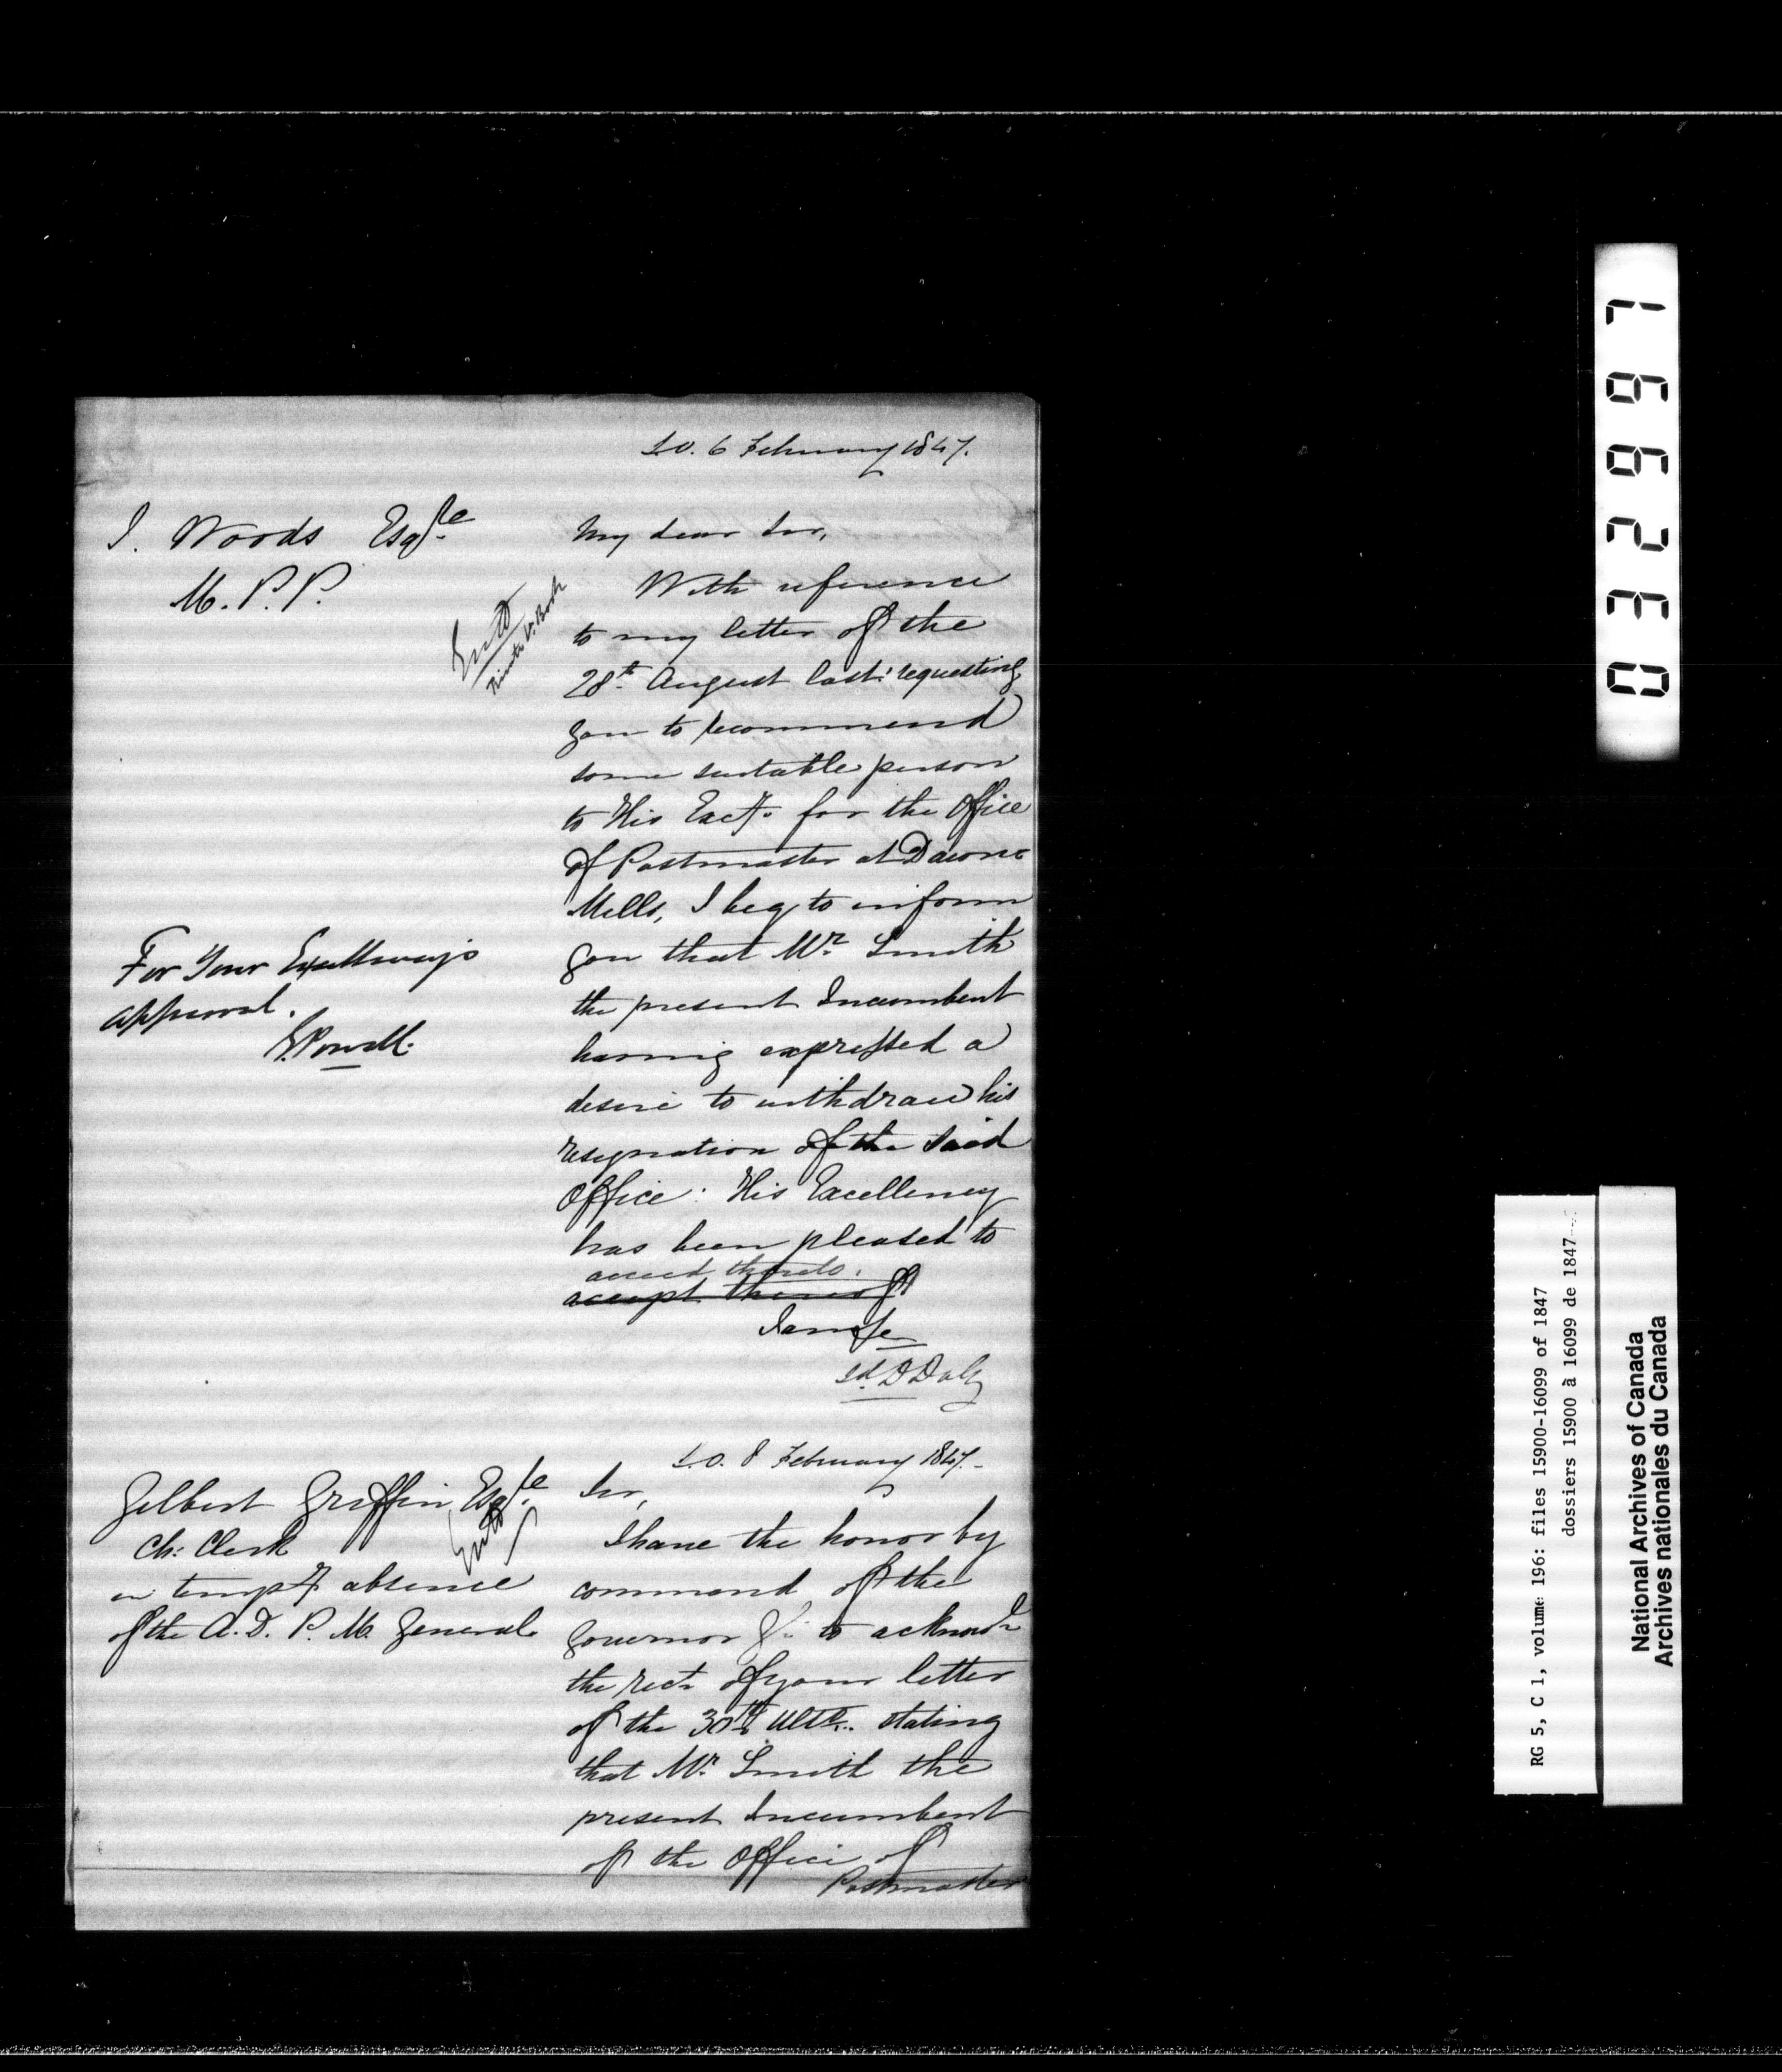 S.O. 6 February 1847.
J. Woods Esqre
M.P.P.
My dear Sir,
With reference
to my letter of the
28th August last requesting
you to recommend
some suitable person
to His Excy. for the Office
of Postmaster at Dawne
Mills, I beg to inform
you that Mr. Smith
the present Incumbent
having expressed a
desire to withdraw his
resignation of the said
Office: His Excellency
has been pleased to
accede thereto.
accept thereof
I am &c
sd. D Daly
Entd
Private L. Book
For Your Excellency's
approval.
G. Powell.
S.O. 8 February 1847.
Gilbert Griffin Esqre.
Ch: Clerk
in tempy absence
of the A.D.P.M. General.
Entd
Sir,
I have the honor by
command of the
Governor G: to acknowe
the rect of your letter
of the 30th Ulto. stating
that Mr. Smith the
present Incumbent
of the Office of
Postmaster
032997
RG 5, C 1, volume 196: files 15900-16099 of 1847
dossiers 15900 à 16099 de 1847
National Archives of Canada
Archives nationales du Canada